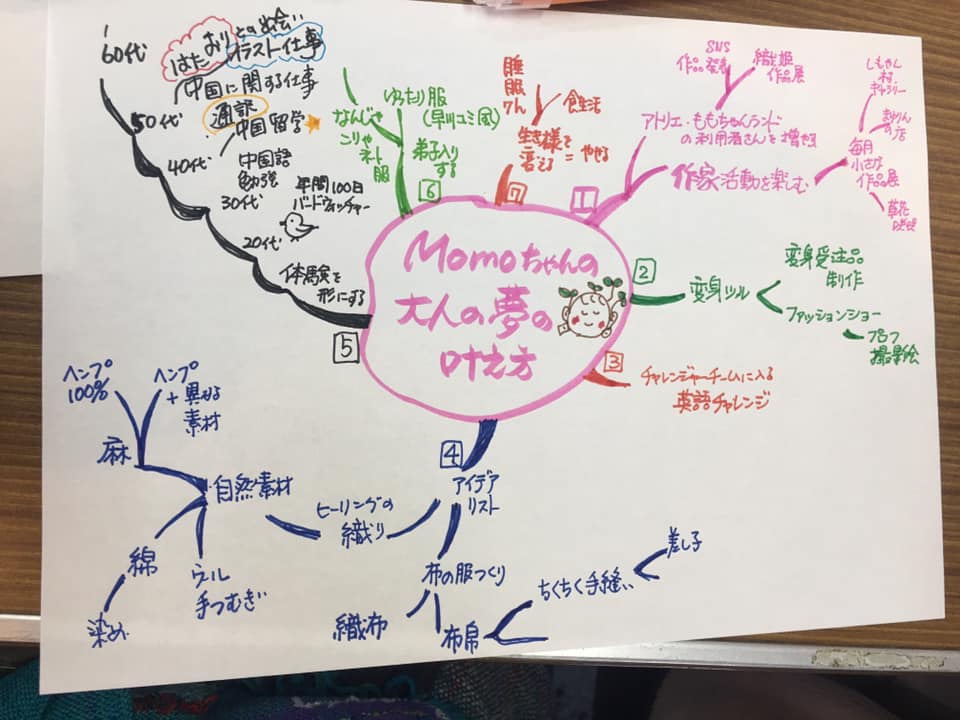 Momoちゃんの
大人の夢の
叶え方
1
作家活動を楽しむ
アトリエ・ももちゃんランド
の利用者さんを増やす
SNS
作品発表
織姫
作品展
毎月
小さな
作品展
しもやん
村
ギャラリー
の店
草花
2
変身ツル
変身受注品
制作
ファッションショー
プロフ
撮影会
3
チャレンジャーチームに入る
英語チャレンジ
4
アイデア
リスト
ヒーリングの
織り
自然素材
麻
ヘンプ
100%
ヘンプ
+異なる
素材
綿
染め
ウール
手つむぎ
布の服つくり
織布
布帛
ちくちく手縫い
差し子
5
体験を
形にする
20代
年間100日
バードウォッチャー
30代
中国語
勉強
40代
中国留学
通訳
50代
中国に関する仕事
60代
はたおりとの出会い
イラスト仕事
6
弟子入り
する
ゆったり服
(早川ユミ風)
なんじゃ
こりゃ
ネート
服
7
生き様を
変える = やせる
食生活
睡
服
ワん